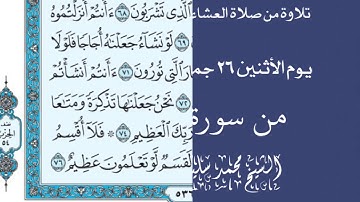 تلاوة من صلاة العشا
يوم الأثنين ٢٦ جم
من سورة
الشيخ محمد
ٱلَّذِي تَشْرَبُونَ ٦٨ ءَأَنتُمْ أَنزَلْتُمُوهُ
٦٩ لَوْ نَشَآءُ جَعَلْنَٰهُ أُجَاجًا فَلَوْلَا
ٱلَّتِي تُورُونَ ٧١ ءَأَنتُمْ أَنشَأْتُمْ
٧٢ نَحْنُ جَعَلْنَٰهَا تَذْكِرَةً وَمَتَٰعًا
رَبِّكَ ٱلْعَظِيمِ ٧٤ فَلَآ أُقْسِمُ
لَقَسَمٌ لَّوْ تَعْلَمُونَ عَظِيمٌ ٧٦
٥٤